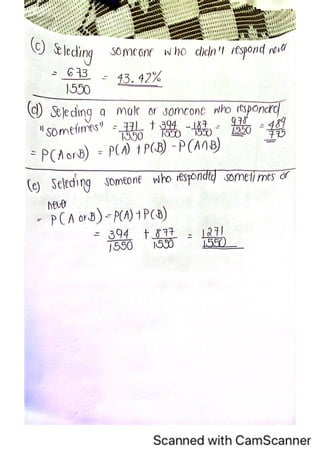 (c) Seleding someone who didn't respond never
= 673/1550 = 43.42%
(d) Seleding a male or someone who responded
"sometimes" = 771/1550 + 394/1550 - 187/1550 = 978/1550 = 489/775
= P(A or B) = P(A) + P(B) - P(A∩B)
(e) Seleding someone who responded sometimes or
never
- P(A or B) = P(A) + P(B)
= 394/1550 + 877/1550 = 1271/1550
Scanned with CamScanner